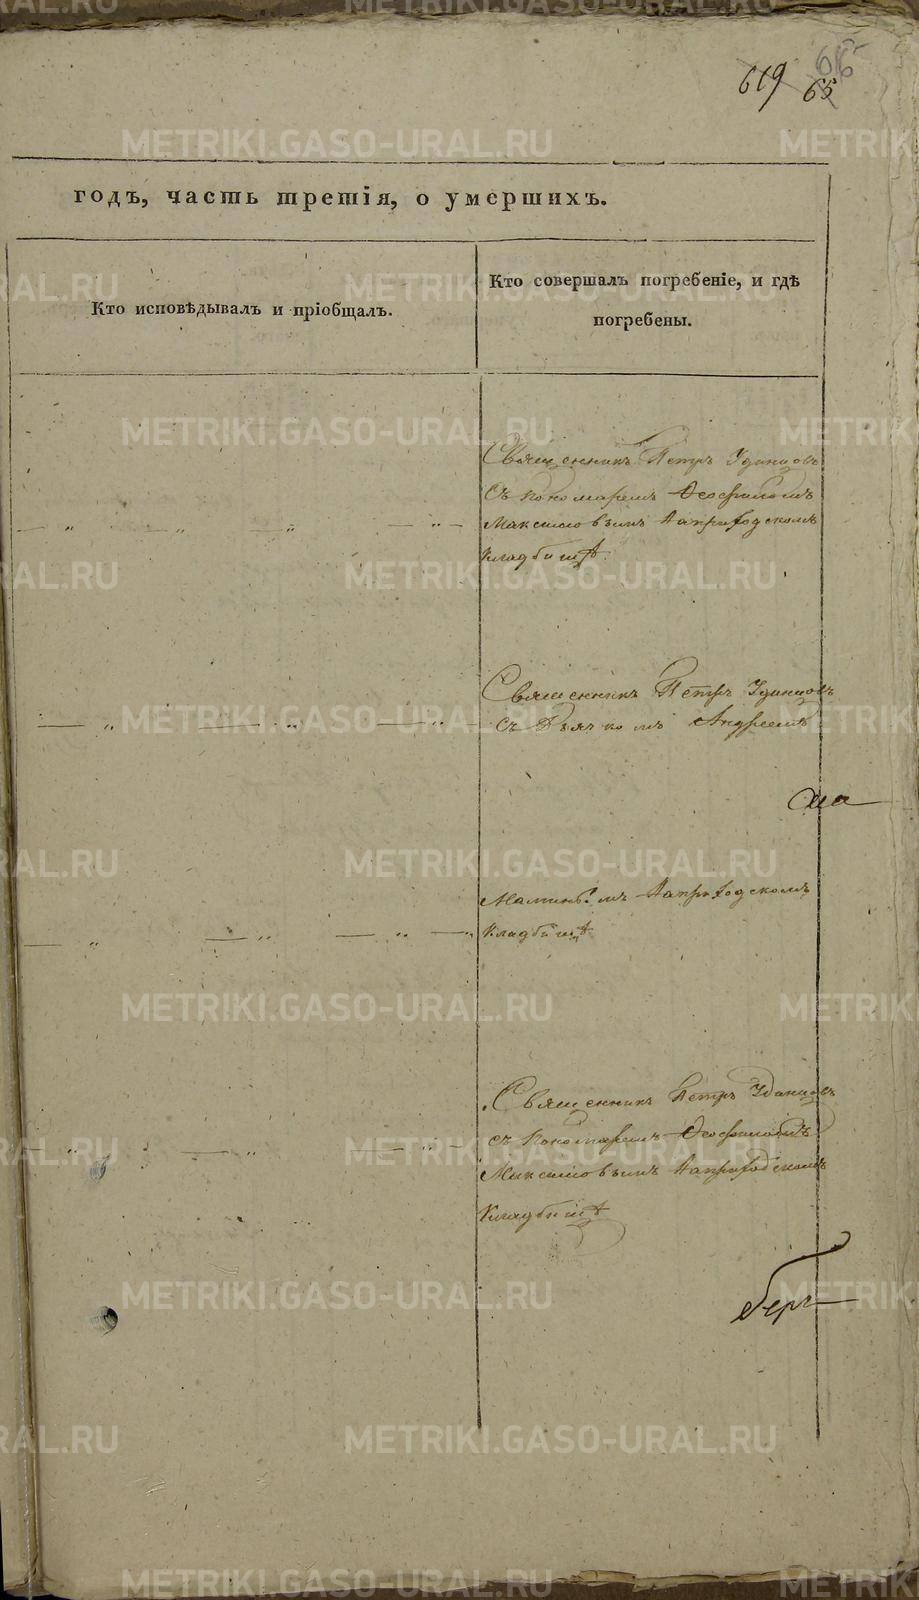 619 65 66
годъ, часть третія, о умершихъ.
Кто исповѣдывалъ и пріобщалъ.
Кто совершалъ погребеніе, и гдѣ
погребены.
Священникъ Петръ Удинцовъ
съ пономаремъ Ѳеофиломъ
Максимовымъ на приходскомъ
кладбищѣ
Священникъ Петръ Удинцовъ
съ Дьячкомъ Андреемъ
Маминымъ на приходскомъ
кладбищѣ
Священникъ Петръ Удинцовъ
съ пономаремъ Ѳеофиломъ
Максимовымъ на приходскомъ
кладбищѣ
METRIKI.GASO-URAL.RU